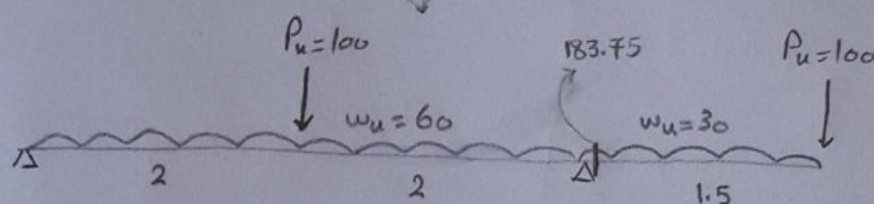 Pu=100
183.75
Pu=100
wu=60
wu=30
2
2
1.5